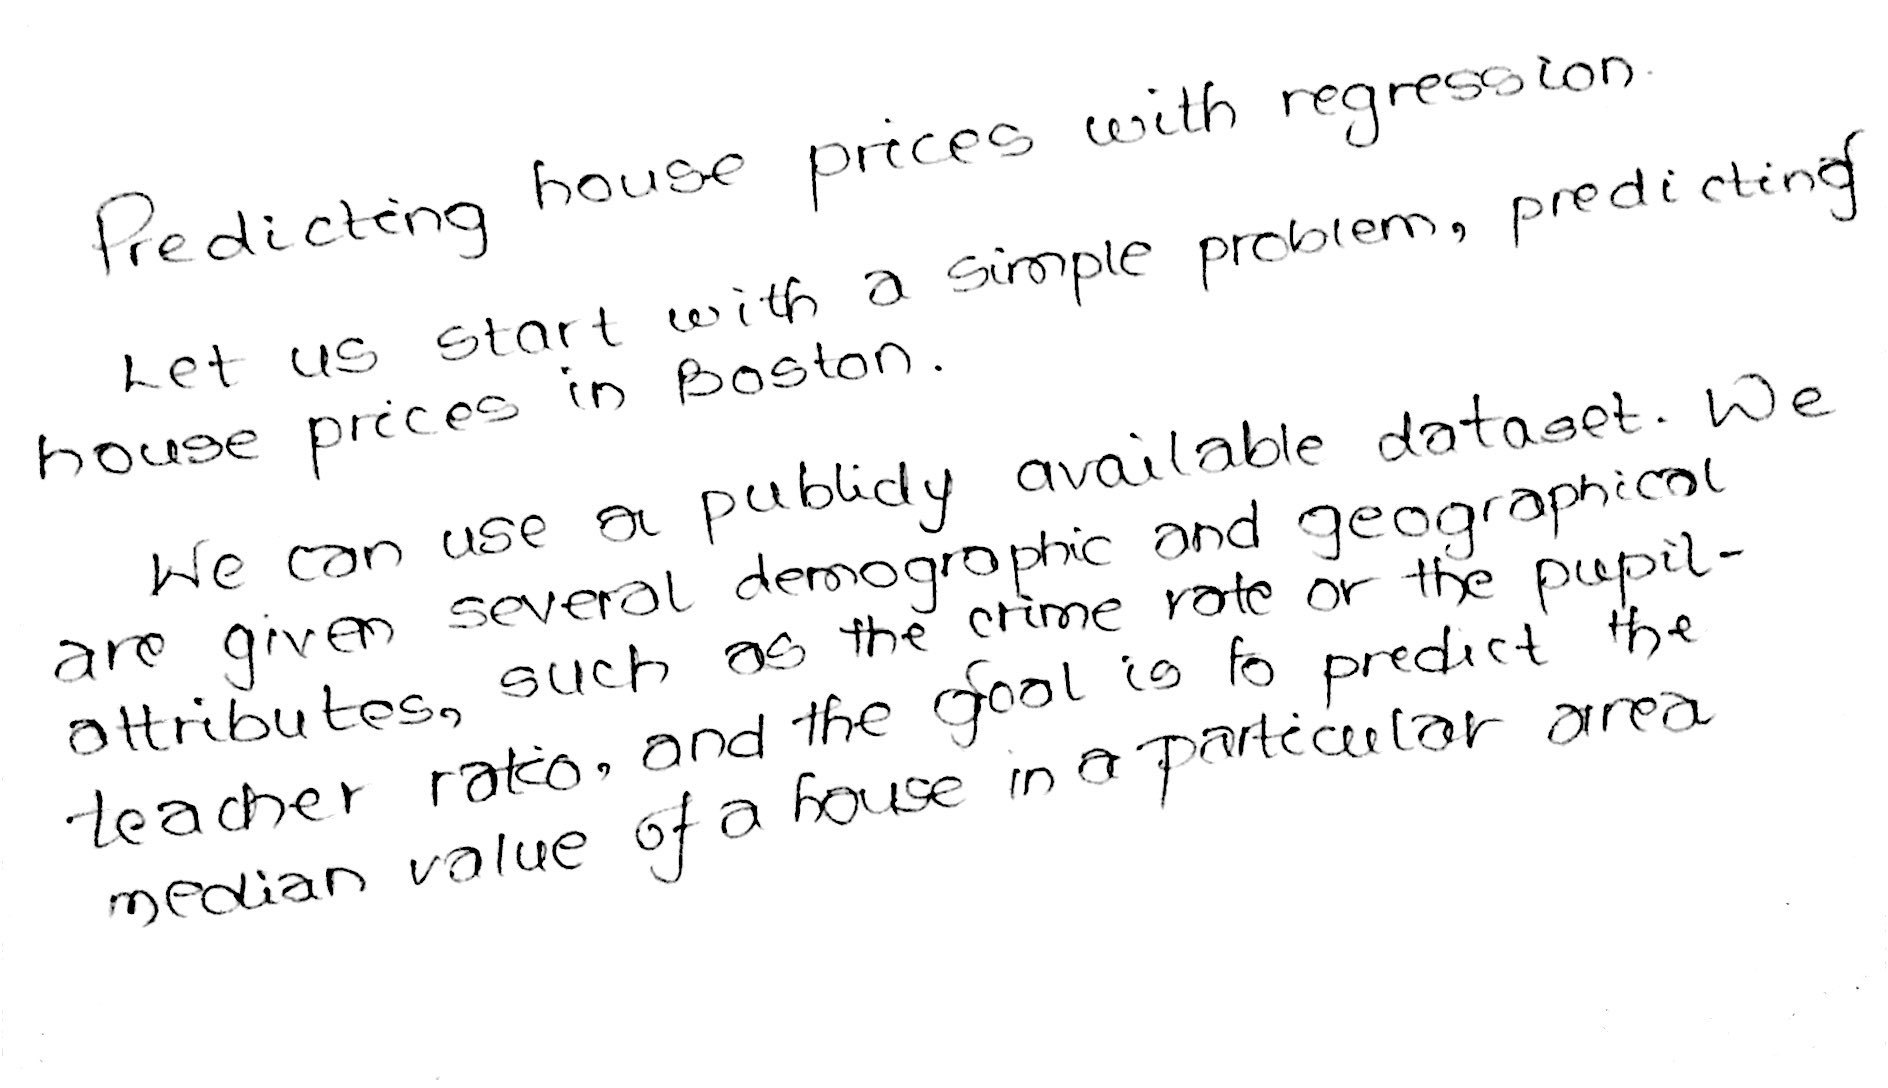 Predicting house prices with regression.
Let us start with a simple problem, predicting
house prices in Boston.
We can use a publicly available dataset. We
are given several demographic and geographical
attributes, such as the crime rate or the pupil-
teacher ratio, and the goal is to predict the
median value of a house in a particular area